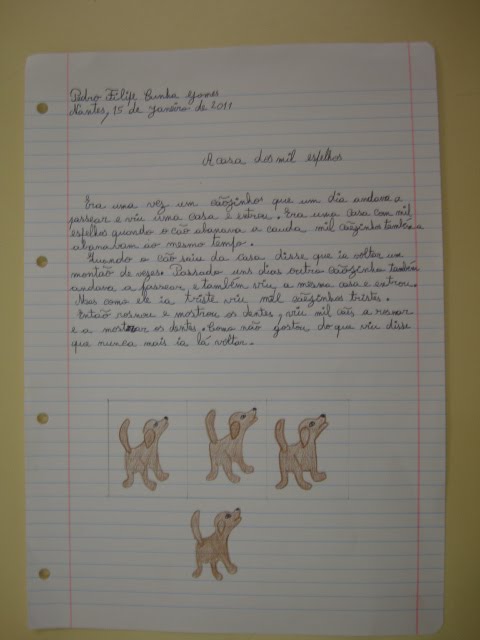 Pedro Filipe Cunha Gomes
Nantes, 15 de Janeiro de 2011
A casa dos mil espelhos
Era uma vez um cãozinhos que um dia andava a
passear e viu uma casa e entrou. Era uma casa com mil
espelhos quando o cão abanava a cauda mil cãezinhos também a
abanavam ao mesmo tempo.
Quando o cão saiu da casa disse que ia voltar um
montão de vezes. Passado uns dias outro cãozinho também
andava a passear, e também viu, a mesma casa e entrou.
Mas como ele ia triste viu mil cãezinhos tristes.
Então rosnou e mostrou os dentes, viu mil cães, a rosnar
e a mostrar os dentes. Como não gostou do que viu disse
que nunca mais ia lá voltar.